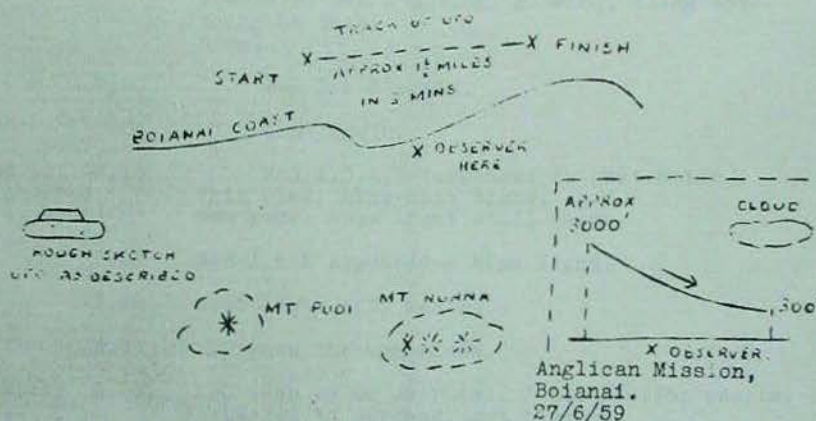 TRACK OF UFO
START X - - - - - X FINISH
APPROX 1½ MILES
IN 3 MINS
BOIANAI COAST
X OBSERVER
HERE
ROUGH SKETCH
UFO AS DESCRIBED
MT PUDI
MT NUANNA
APPROX
3000'
CLOUD
300
X OBSERVER.
Anglican Mission,
Boianai.
27/6/59